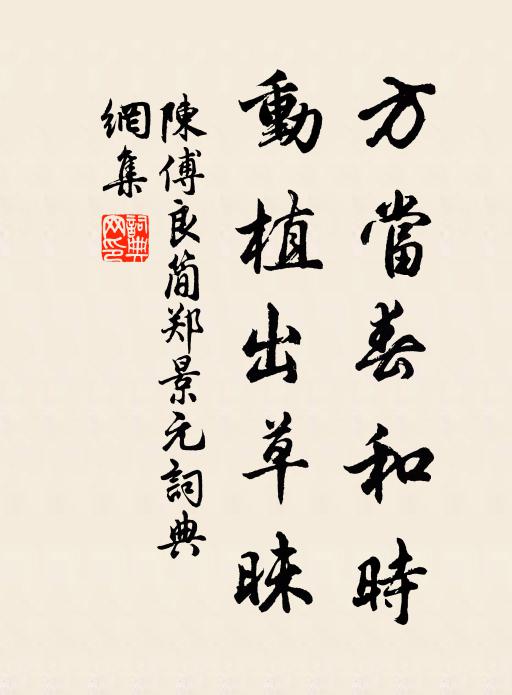 方當春和時
動植出草昧
陳傅良簡郑景元詞典
網集
詞典网印